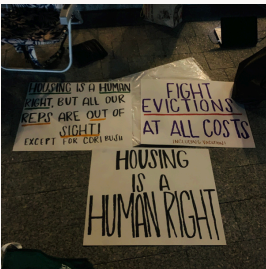 HOUSING IS A HUMAN
RIGHT, BUT ALL OUR
REPS ARE OUT OF
SIGHT!
EXCEPT FOR CORI BUSH
FIGHT
EVICTIONS
AT ALL COSTS
HOUSING
IS A
HUMAN RIGHT